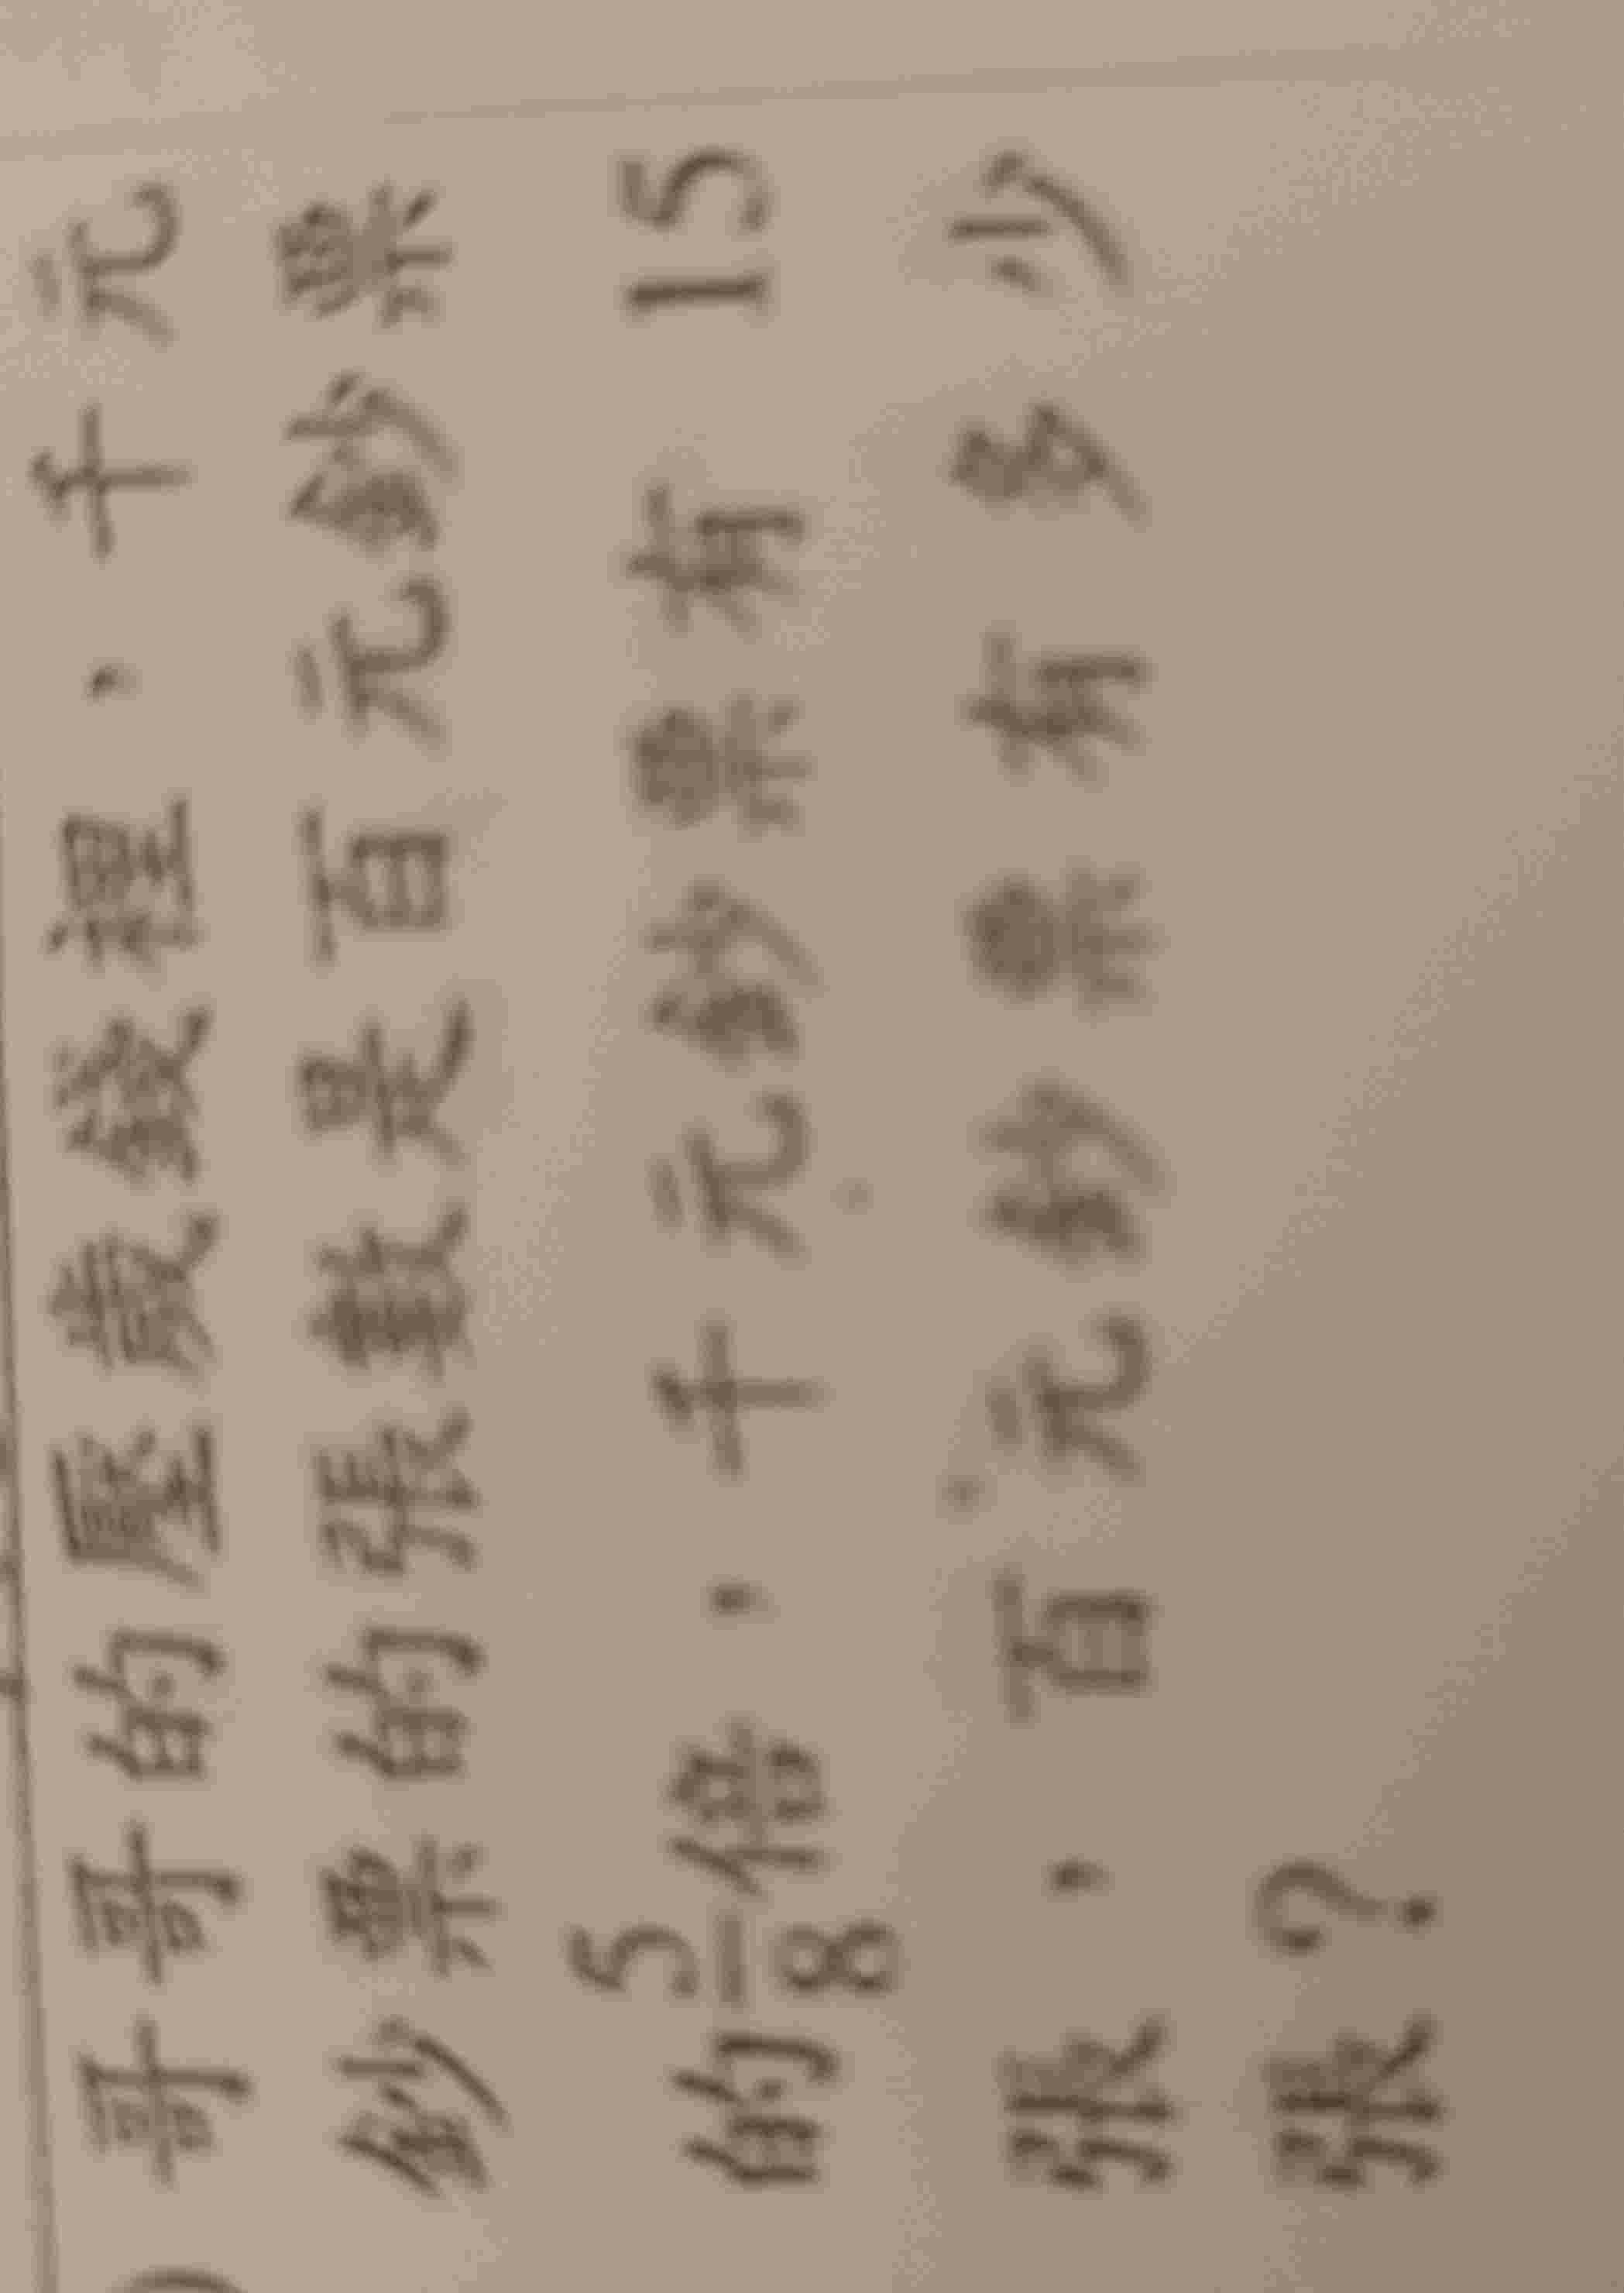 哥哥的壓歲錢裡，千元
鈔票的張數是百元鈔票
的5/8倍，千元鈔票有15
張，百元鈔票有多少
張？